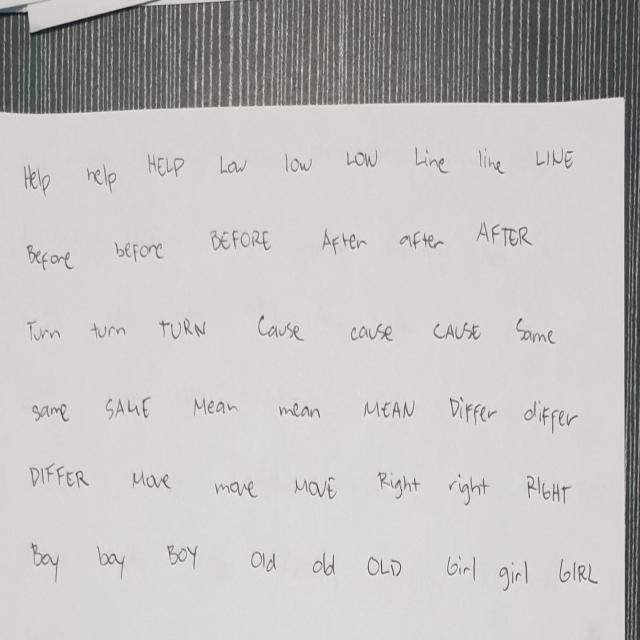 Help help HELP Low low LOW Line line LINE
Before before BEFORE After after AFTER
Turn turn TURN Cause cause CAUSE Same
same SAME Mean mean MEAN Differ differ
DIFFER Move move MOVE Right right RIGHT
Boy boy BOY Old old OLD Girl girl GIRL